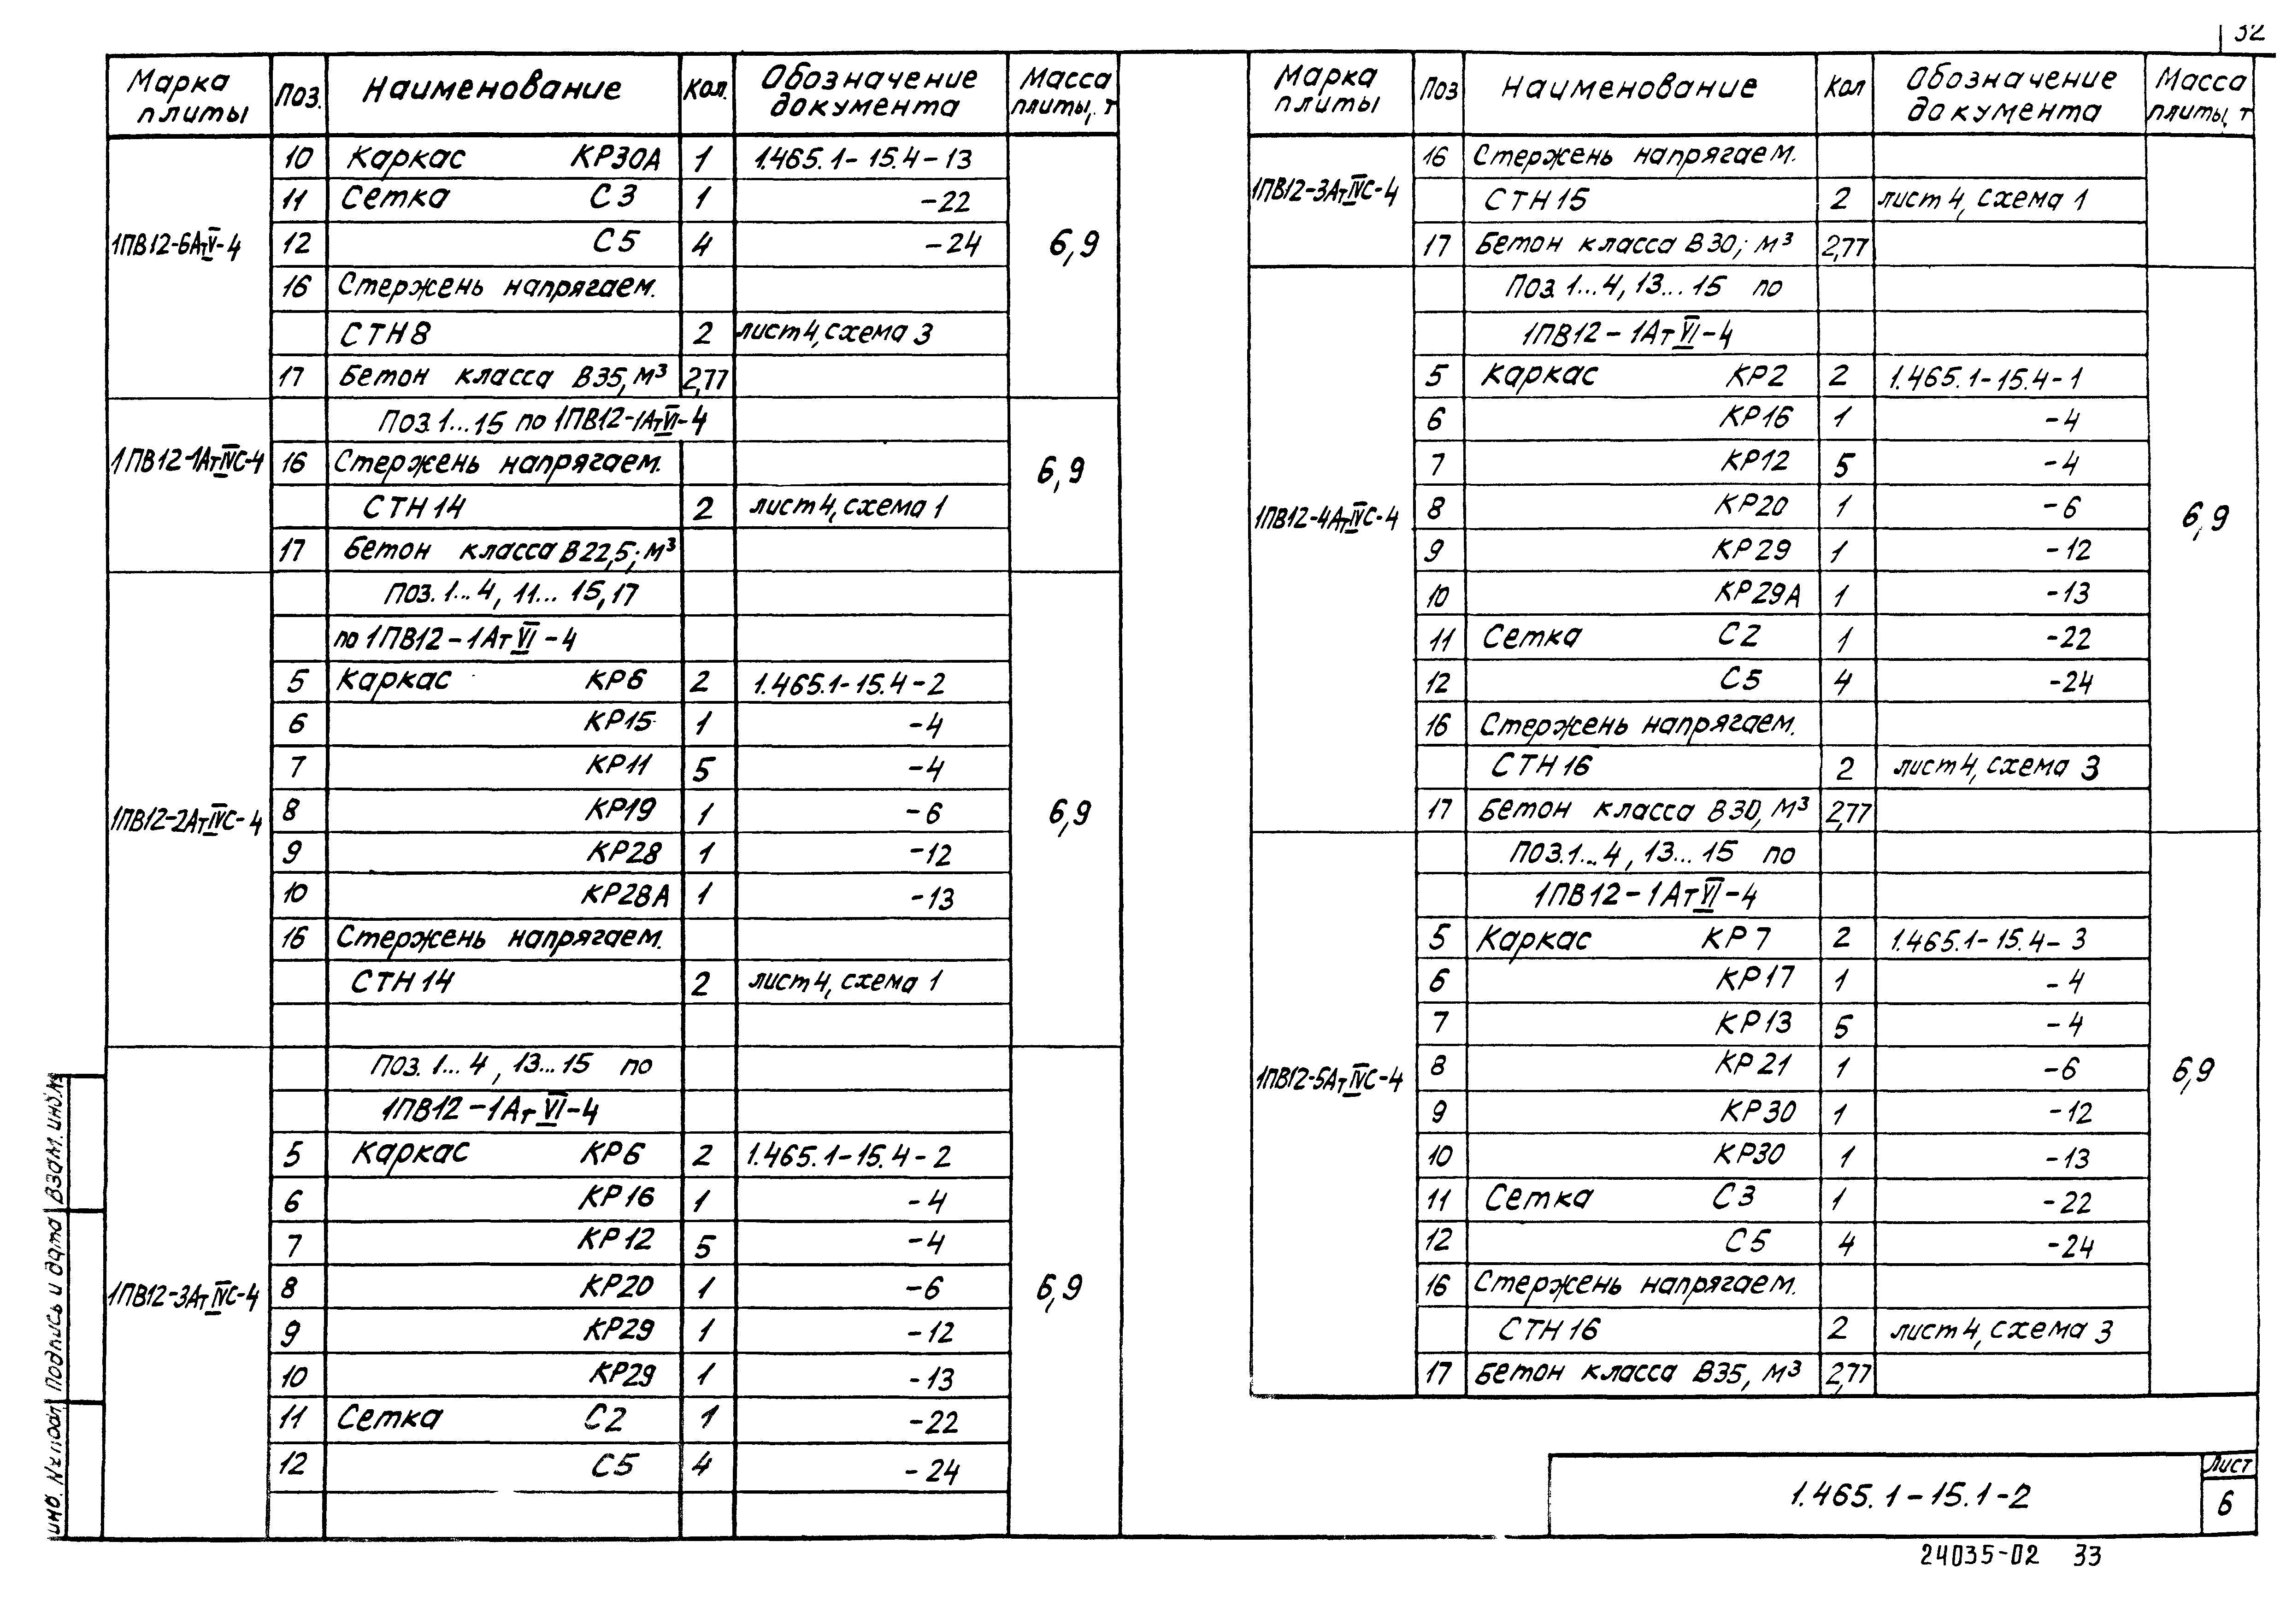 32
Марка плиты Поз. Наименование Кол. Обозначение документа Масса плиты, т
1ПВ12-6АтV-4 6,9
10 Каркас КР30А 1 1.465.1-15.4-13
11 Сетка С3 1 -22
12 С5 4 -24
16 Стержень напрягаем.
СТН8 2 лист 4, схема 3
17 Бетон класса В35, м³ 2,77
1ПВ12-1АтIVС-4 6,9
Поз. 1...15 по 1ПВ12-1АтVI-4
16 Стержень напрягаем.
СТН14 2 лист 4, схема 1
17 Бетон класса В22,5; м³
1ПВ12-2АтIVС-4 6,9
Поз. 1...4, 11...15, 17
по 1ПВ12-1АтVI-4
5 Каркас КР6 2 1.465.1-15.4-2
6 КР15 1 -4
7 КР11 5 -4
8 КР19 1 -6
9 КР28 1 -12
10 КР28А 1 -13
16 Стержень напрягаем.
СТН14 2 лист 4, схема 1
1ПВ12-3АтIVС-4 6,9
Поз. 1...4, 13...15 по
1ПВ12-1АтVI-4
5 Каркас КР6 2 1.465.1-15.4-2
6 КР16 1 -4
7 КР12 5 -4
8 КР20 1 -6
9 КР29 1 -12
10 КР29 1 -13
11 Сетка С2 1 -22
12 С5 4 -24
Марка плиты Поз Наименование Кол Обозначение документа Масса плиты, т
1ПВ12-3АтIVС-4
16 Стержень напрягаем.
СТН15 2 лист 4, схема 1
17 Бетон класса В30; м³ 2,77
1ПВ12-4АтIVС-4 6,9
Поз. 1...4, 13...15 по
1ПВ12-1АтVI-4
5 Каркас КР2 2 1.465.1-15.4-1
6 КР16 1 -4
7 КР12 5 -4
8 КР20 1 -6
9 КР29 1 -12
10 КР29А 1 -13
11 Сетка С2 1 -22
12 С5 4 -24
16 Стержень напрягаем.
СТН16 2 лист 4, схема 3
17 Бетон класса В30, м³ 2,77
1ПВ12-5АтIVС-4 6,9
Поз. 1...4, 13...15 по
1ПВ12-1АтVI-4
5 Каркас КР7 2 1.465.1-15.4-3
6 КР17 1 -4
7 КР13 5 -4
8 КР21 1 -6
9 КР30 1 -12
10 КР30 1 -13
11 Сетка С3 1 -22
12 С5 4 -24
16 Стержень напрягаем.
СТН16 2 лист 4, схема 3
17 Бетон класса В35, м³ 2,77
Взам. инв.№
Подпись и дата
Инв. № подл.
1.465.1-15.1-2
Лист
6
24035-02 33